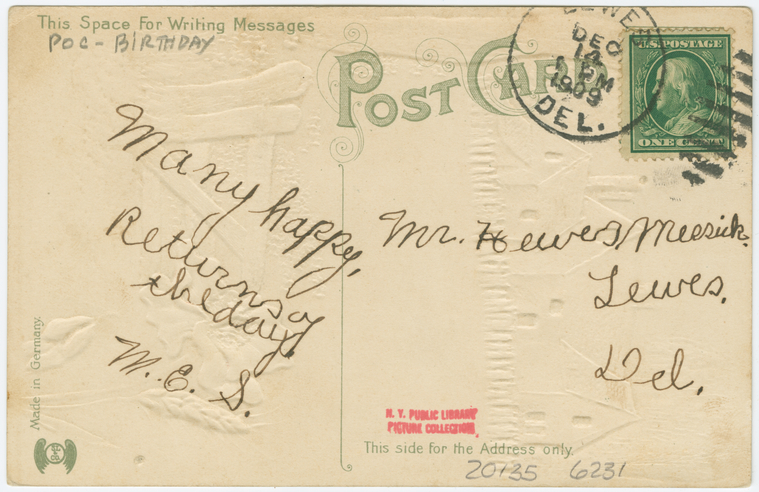 This Space For Writing Messages
POC - BIRTHDAY
POST CAR
DEC
14
1 PM
1909
DEL.
U.S. POSTAGE
ONE
Many happy,
Returns of
the day.
M. E. S.
Mr. Hewes Meesick.
Lewes.
Del.
Made in Germany.
N. Y. PUBLIC LIBRARY
PICTURE COLLECTION.
This side for the Address only.
20135 6231